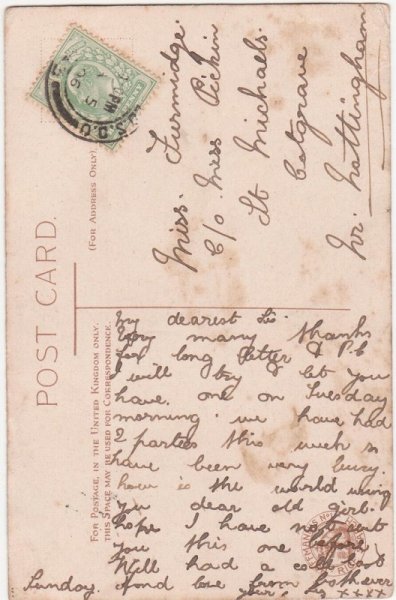 POST CARD.
(For Address Only).
FOR POSTAGE, IN THE UNITED KINGDOM ONLY,
THIS SPACE MAY BE USED FOR CORRESPONDENCE.
Miss. Turmidge.
C/o Miss Pickin
St Michaels.
Colgrave
Nr. Nottingham
My dearest Lis.
Very many thanks
for long letter & P.C
I will try & let you
have one on Tuesday
morning. we have had
2 parties this week so
have been very busy.
how is the world using
you dear old girl.
hope I have not sent
you this one before.
Will had a cold foot
Sunday. fond love from
your Lis xxxx